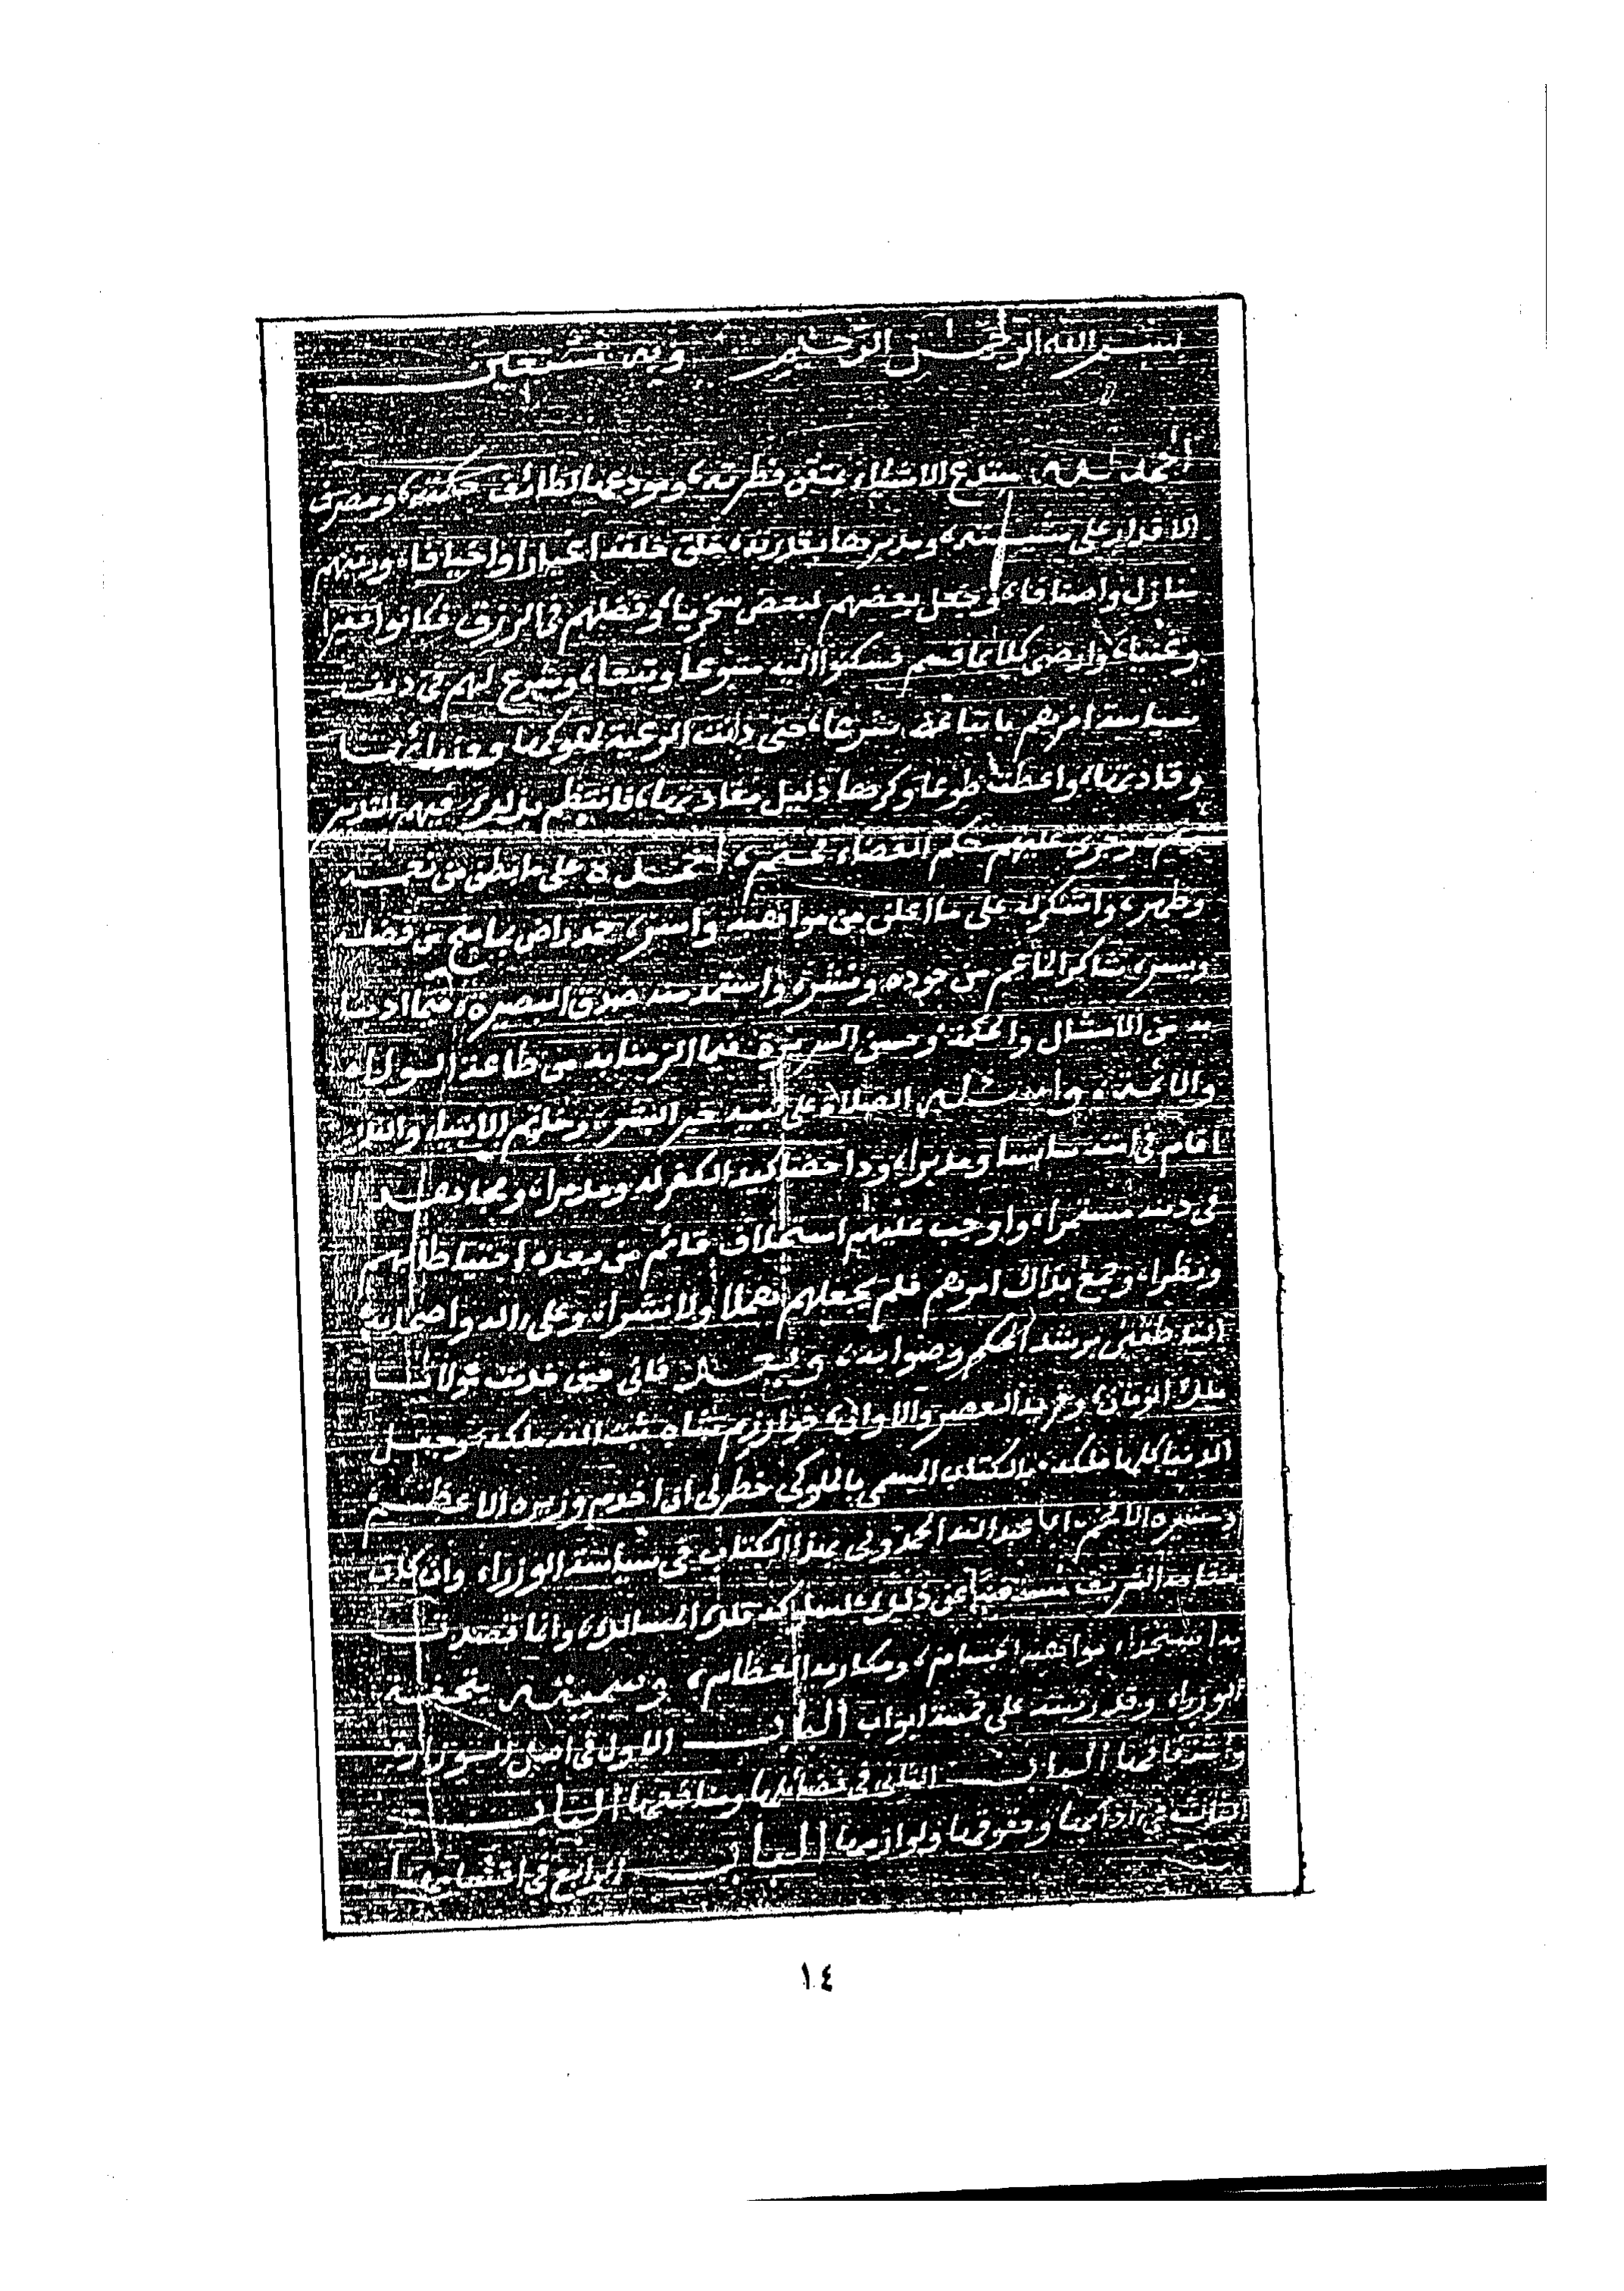 بسم الله الرحمن الرحيم وبه نستعين
الحمد لله مبتدع الاشياء بمتقن فطرته، ومودعها لطائف حكمته، ومصرف
الاقدار على مشيئته، ومدبرها بقدرته، خلق خلقه اخيارا واخيافا، ورتبهم
منازل واصنافا، وجعل بعضهم لبعض سخريا، وفضلهم في الرزق فكانوا فقيرا
وغنيا، وارضى كلا بما قسم وشرع لهم في دينه
سياسة امرهم حتى دانت الرعية لملوكها
وقادتها، واعطت طوعا وكرها ذليل مقادتها، فانتظم بذلك فيهم التدبير
وجرى عليهم حكم القضاء احمده على ما بطن من نعمه
وظهر، واشكره على ما اعلن من مواهبه واسر، حمد راض بما منح من فضله
ويسر، شاكر لما عم من جوده ونشر، واستمد منه صدق البصيرة، فيما ادبنا
به من الامثال والحكمة وحسن السريرة فيما الزمنا به من طاعة الولاة
والائمة، واسئله الصلاة على نبيه خير البشر، وخاتم الانبيا، والذي
اقام في امته سايسا ومدبرا، وداحضا كيد الكفرة ومدمرا، ومجاهدا
في دينه مستمرا، واوجب عليهم استخلاف قائم من بعده احتياطا لهم
ونظرا، وجمع بذلك امرهم فلم يجعلهم هملا ولا نشرا، وعلى اله واصحابه
برشد الحكم وصوابه، وبعد فاني حين خدمت مولانا
ملك الزمان، وفريد العصر والاوان، خوارزم شاه ثبت الله ملكه، وجعل
الدنيا كلها ملكه، بالكتاب المسمى بالملوكي خطر لي ان اخدم وزيره الاعظم
ودستوره الافخم ابا عبد الله الحمدوني بهذا الكتاب في سياسة الوزراء وان كان
مقامه الشريف مستغنيا عن ذلك، لسلوكه تلك المسالك، وانا قصدت
به استجداء مواهبه الجسام، ومكارمه العظام، وسميته بتحفة
الوزراء وقد رتبته على خمسة ابواب الباب الاول في اصل الوزارة
واشتقاقها الباب الثاني في فضايلها ومنافعها الباب
الثالث في ادابها وحقوقها ولوازمها الباب الرابع في اقسامها
١٤